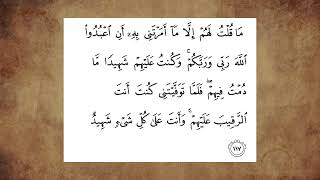 مَا قُلْتُ لَهُمْ إِلَّا مَآ أَمَرْتَنِى بِهِۦٓ أَنِ ٱعْبُدُوا۟
ٱللَّهَ رَبِّى وَرَبَّكُمْ ۚ وَكُنتُ عَلَيْهِمْ شَهِيدًا مَّا
دُمْتُ فِيهِمْ ۖ فَلَمَّا تَوَفَّيْتَنِى كُنتَ أَنتَ
ٱلرَّقِيبَ عَلَيْهِمْ ۚ وَأَنتَ عَلَىٰ كُلِّ شَىْءٍ شَهِيدٌ ١١٧